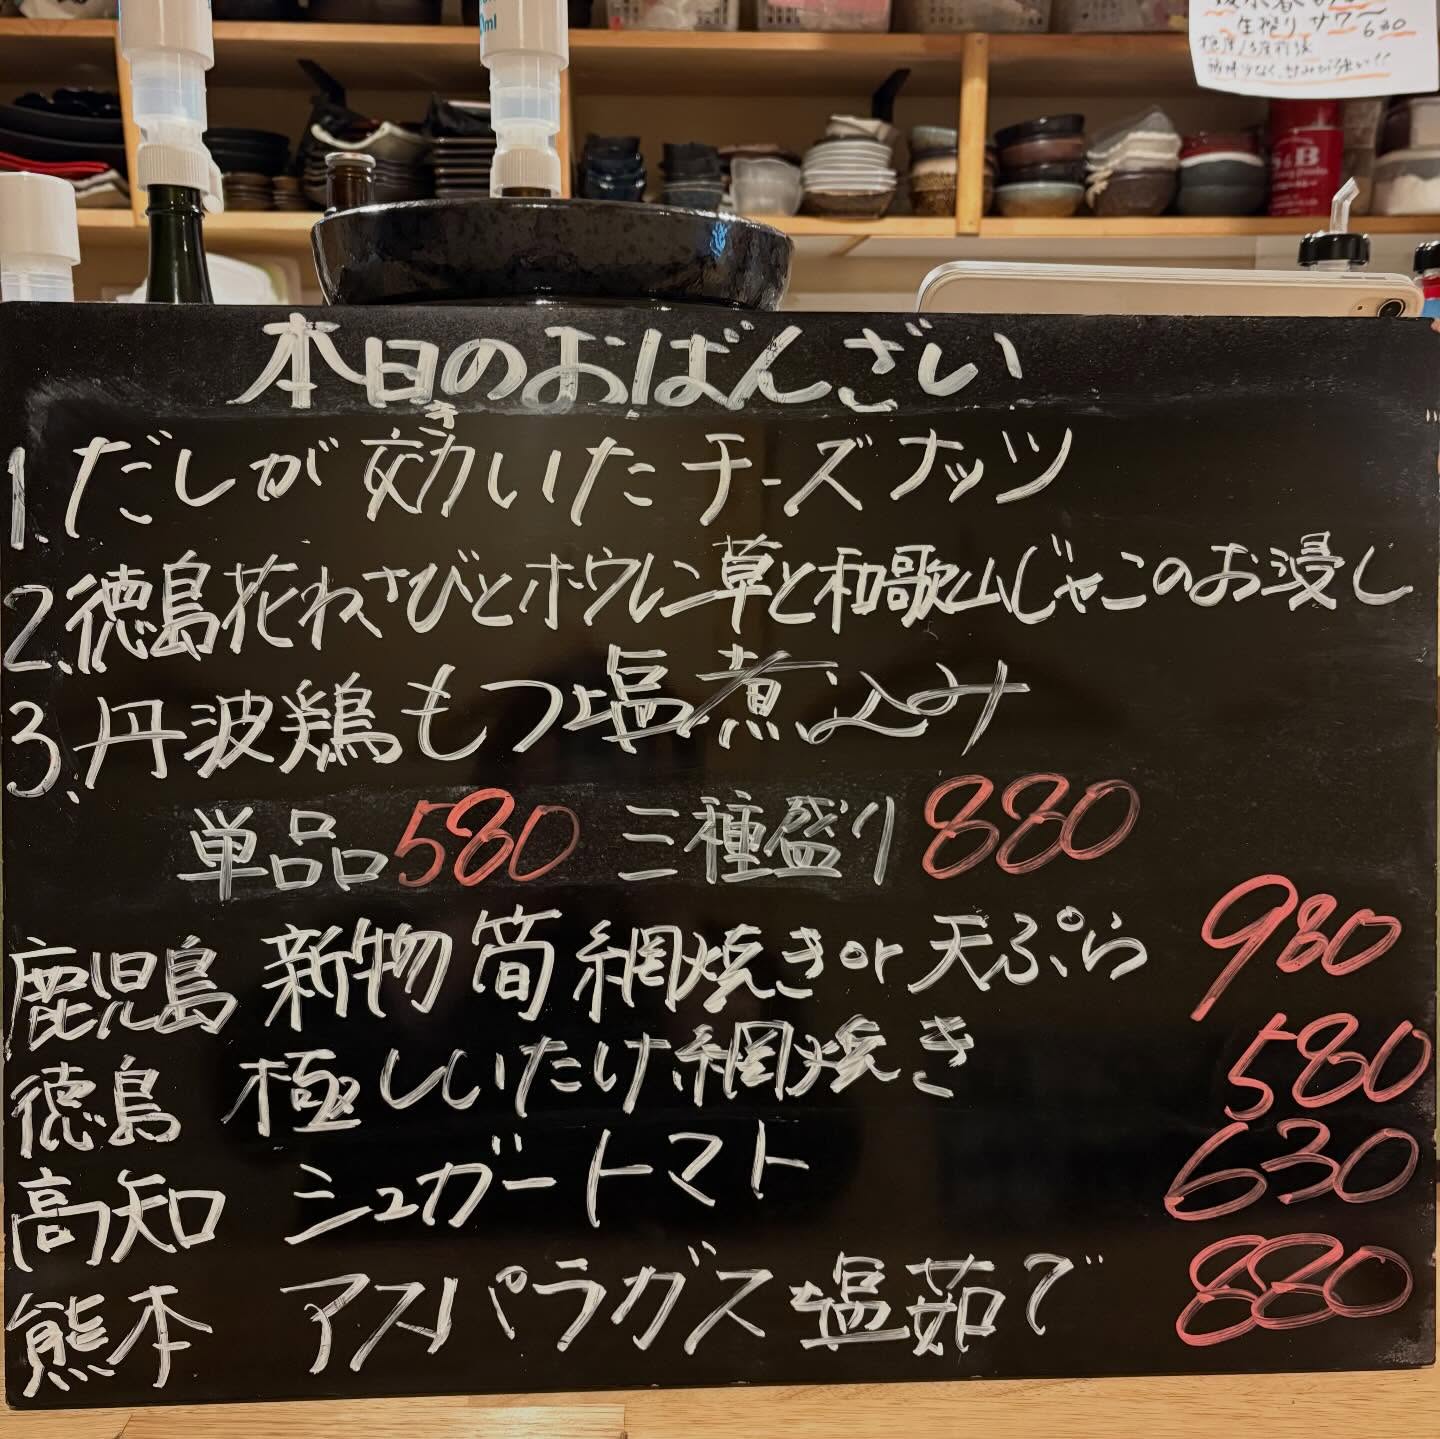 生搾りサワー 630
S&B
本日のおばんざい
1.だしが効いたチーズナッツ
2.徳島花わさびとホウレン草と和歌山じゃこのお浸し
3.丹波鶏もつ塩煮込み
単品580 三種盛り880
鹿児島 新物筍網焼きor天ぷら 980
徳島 極しいたけ網焼き 580
高知 シュガートマト 630
熊本 アスパラガス塩茹で 880